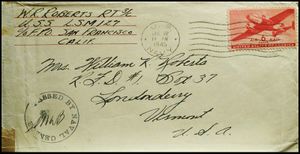 W.R. ROBERTS RT 3/c
U.S.S. LSM 127
c/o F.P.O. SAN FRANCISCO
CALIF.
U.S.
NAVY
1945
6¢
AIR MAIL
UNITED STATES OF AMERICA
Mrs. William R. Roberts
R.F.D #1 Box 37
Londonderry
Vermont
U.S.A
PASSED BY NAVAL CENSOR